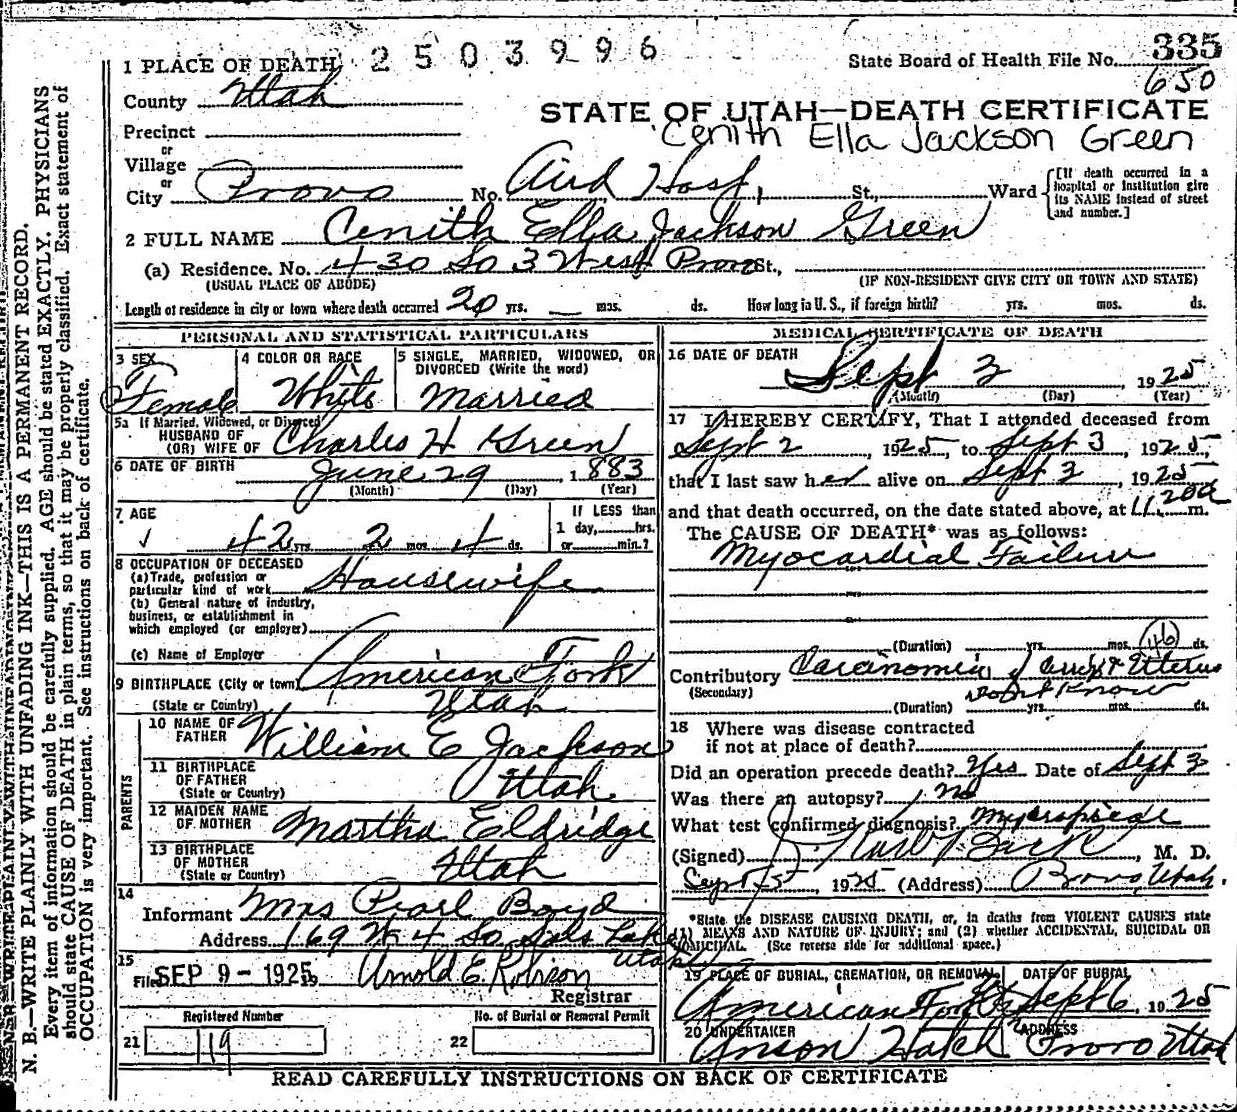 1 PLACE OF DEATH 2503996
State Board of Health File No. 335
650
County Utah
STATE OF UTAH—DEATH CERTIFICATE
Cenith Ella Jackson Green
Precinct
or
Village
or
City Provo No. Aird Hosp, St., Ward
[If death occurred in a hospital or institution give its NAME instead of street and number.]
2 FULL NAME Cenith Ella Jackson Green
(a) Residence. No. 430 So 3 West Provo St.,
(USUAL PLACE OF ABODE) (IF NON-RESIDENT GIVE CITY OR TOWN AND STATE)
Length of residence in city or town where death occurred 20 yrs. — mos. ds. How long in U. S., if foreign birth? yrs. mos. ds.
PERSONAL AND STATISTICAL PARTICULARS
3 SEX Female
4 COLOR OR RACE White
5 SINGLE, MARRIED, WIDOWED, OR DIVORCED (Write the word) Married
5a If Married, Widowed, or Divorced
HUSBAND OF
(OR) WIFE OF Charles H Green
6 DATE OF BIRTH June 29 1883
(Month) (Day) (Year)
7 AGE 42 yrs. 2 mos. 4 ds.
If LESS than
1 day,......hrs.
or......min.?
8 OCCUPATION OF DECEASED
(a) Trade, profession or
particular kind of work Housewife
(b) General nature of industry,
business, or establishment in
which employed (or employer)
(c) Name of Employer
9 BIRTHPLACE (City or town) American Fork
(State or Country) Utah
PARENTS
10 NAME OF FATHER William E Jackson
11 BIRTHPLACE OF FATHER (State or Country) Utah
12 MAIDEN NAME OF MOTHER Martha Eldridge
13 BIRTHPLACE OF MOTHER (State or Country) Utah
14
Informant Mrs Pearl Boyd
Address 169 W 4 So Salt Lake
Utah
15
Filed SEP 9 - 1925 Arnold E. Robison
Registrar
Registered Number
21 119
No. of Burial or Removal Permit
22
MEDICAL CERTIFICATE OF DEATH
16 DATE OF DEATH
Sept 3 1925
(Month) (Day) (Year)
17 I HEREBY CERTIFY, That I attended deceased from
Sept 2, 1925, to Sept 3, 1925,
that I last saw her alive on Sept 3, 1925
and that death occurred, on the date stated above, at 11.20a m.
The CAUSE OF DEATH* was as follows:
Myocardial Failure
(Duration) yrs. mos. ds.
46
Contributory Carcinoma of Cervix Uterus
(Secondary) dont know
(Duration) yrs. mos. ds.
18 Where was disease contracted
if not at place of death?
Did an operation precede death? Yes Date of Sept 3
Was there an autopsy? no
What test confirmed diagnosis?
(Signed) J. Karl Beck, M. D.
Sept 5, 1925 (Address) Provo, Utah.
*State the DISEASE CAUSING DEATH, or, in deaths from VIOLENT CAUSES state
(1) MEANS AND NATURE OF INJURY; and (2) whether ACCIDENTAL, SUICIDAL OR
HOMICIDAL. (See reverse side for additional space.)
19 PLACE OF BURIAL, CREMATION, OR REMOVAL DATE OF BURIAL
American Fork Sept 6, 1925
20 UNDERTAKER ADDRESS
Anson Hatch Provo Utah
READ CAREFULLY INSTRUCTIONS ON BACK OF CERTIFICATE
N. B.—WRITE PLAINLY WITH UNFADING INK—THIS IS A PERMANENT RECORD.
Every item of information should be carefully supplied. AGE should be stated EXACTLY. PHYSICIANS
should state CAUSE OF DEATH in plain terms, so that it may be properly classified. Exact statement of
OCCUPATION is very important. See instructions on back of certificate.